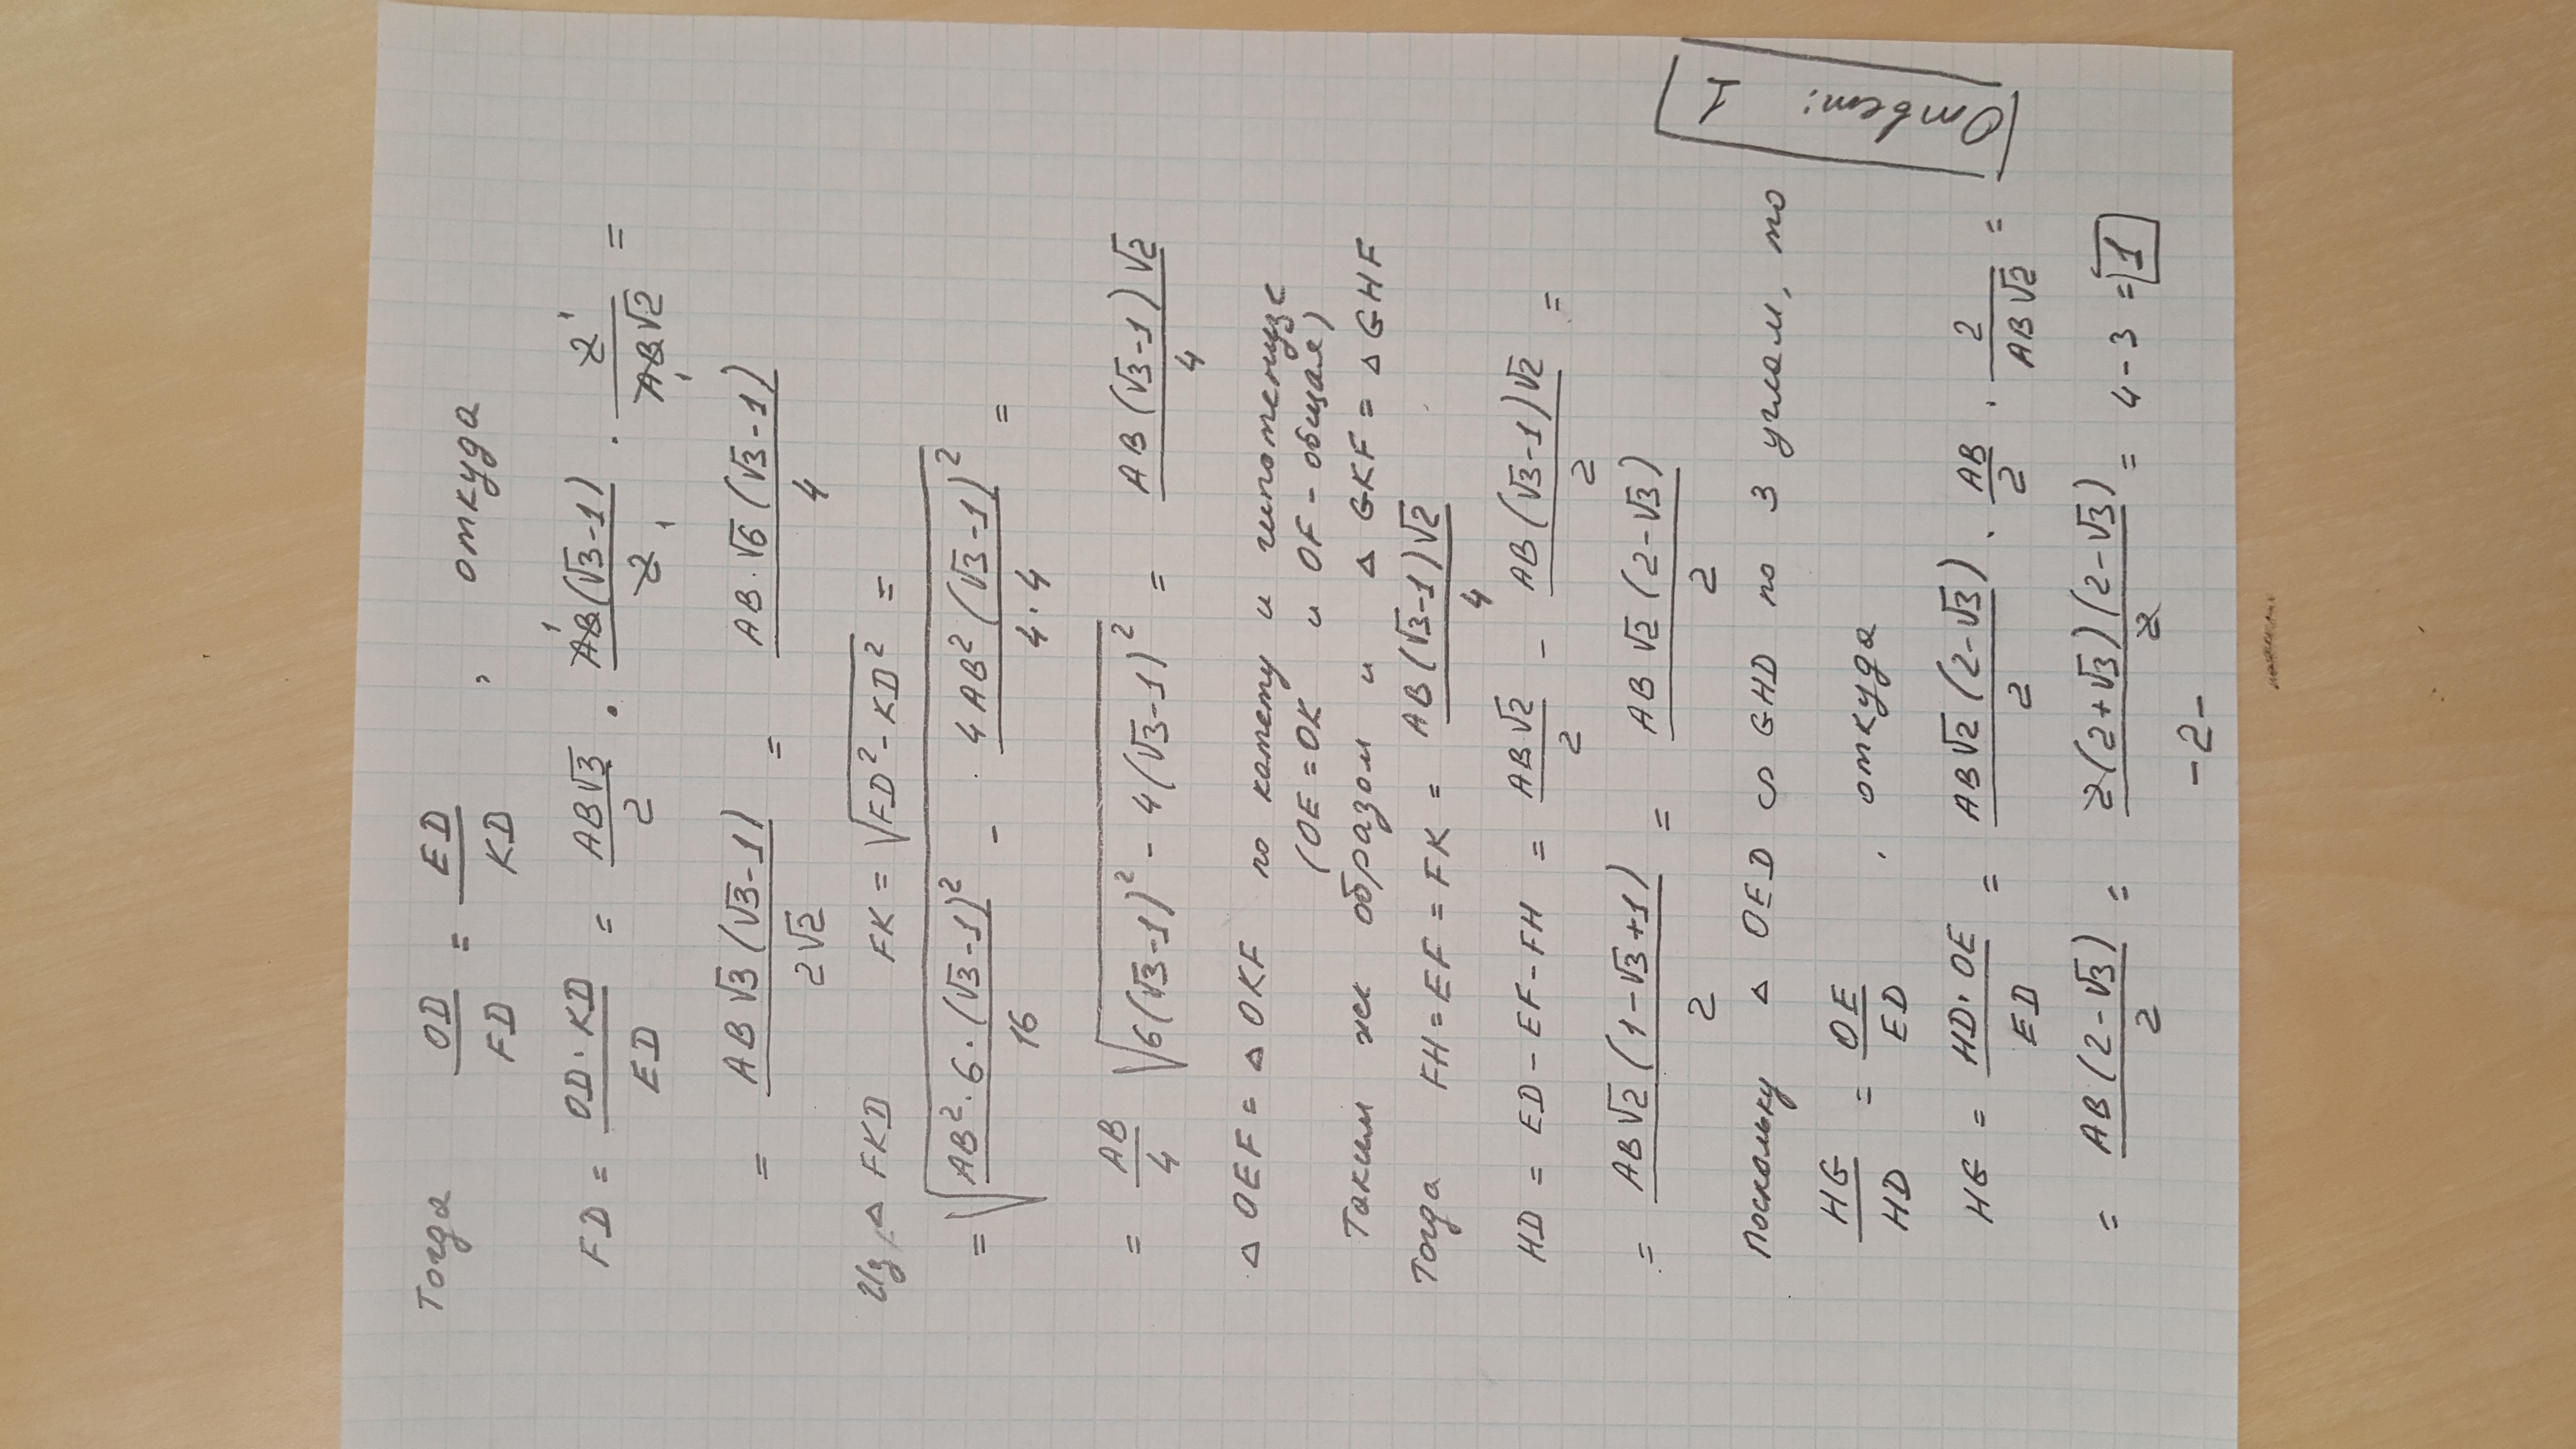 Тогда OD/FD = ED/KD, откуда
FD = OD·KD/ED = AB√3/2 · AB(√3-1)/2 · 2/AB√2 =
= AB√3(√3-1)/2√2 = AB·√6(√3-1)/4
Из △ FKD FK = √(FD² - KD²) =
= √(AB²·6·(√3-1)²/16 - 4AB²(√3-1)²/4·4) =
= AB/4 √(6(√3-1)² - 4(√3-1)²) = AB(√3-1)√2/4
△ OEF = △ OKF по катету и гипотенузе
(OE = OK и OF - общая)
Таким же образом и △ GKF = △ GHF
Тогда FH = EF = FK = AB(√3-1)√2/4
HD = ED - EF - FH = AB√2/2 - AB(√3-1)√2/2 =
= AB√2(1-√3+1)/2 = AB√2(2-√3)/2
Поскольку △ OED ∽ GHD по 3 углам, то
HG/HD = OE/ED, откуда
HG = HD·OE/ED = AB√2(2-√3)/2 · AB/2 · 2/AB√2 =
= AB(2-√3)/2 = 2(2+√3)(2-√3)/2 = 4-3 = 1
-2-
Ответ: 1